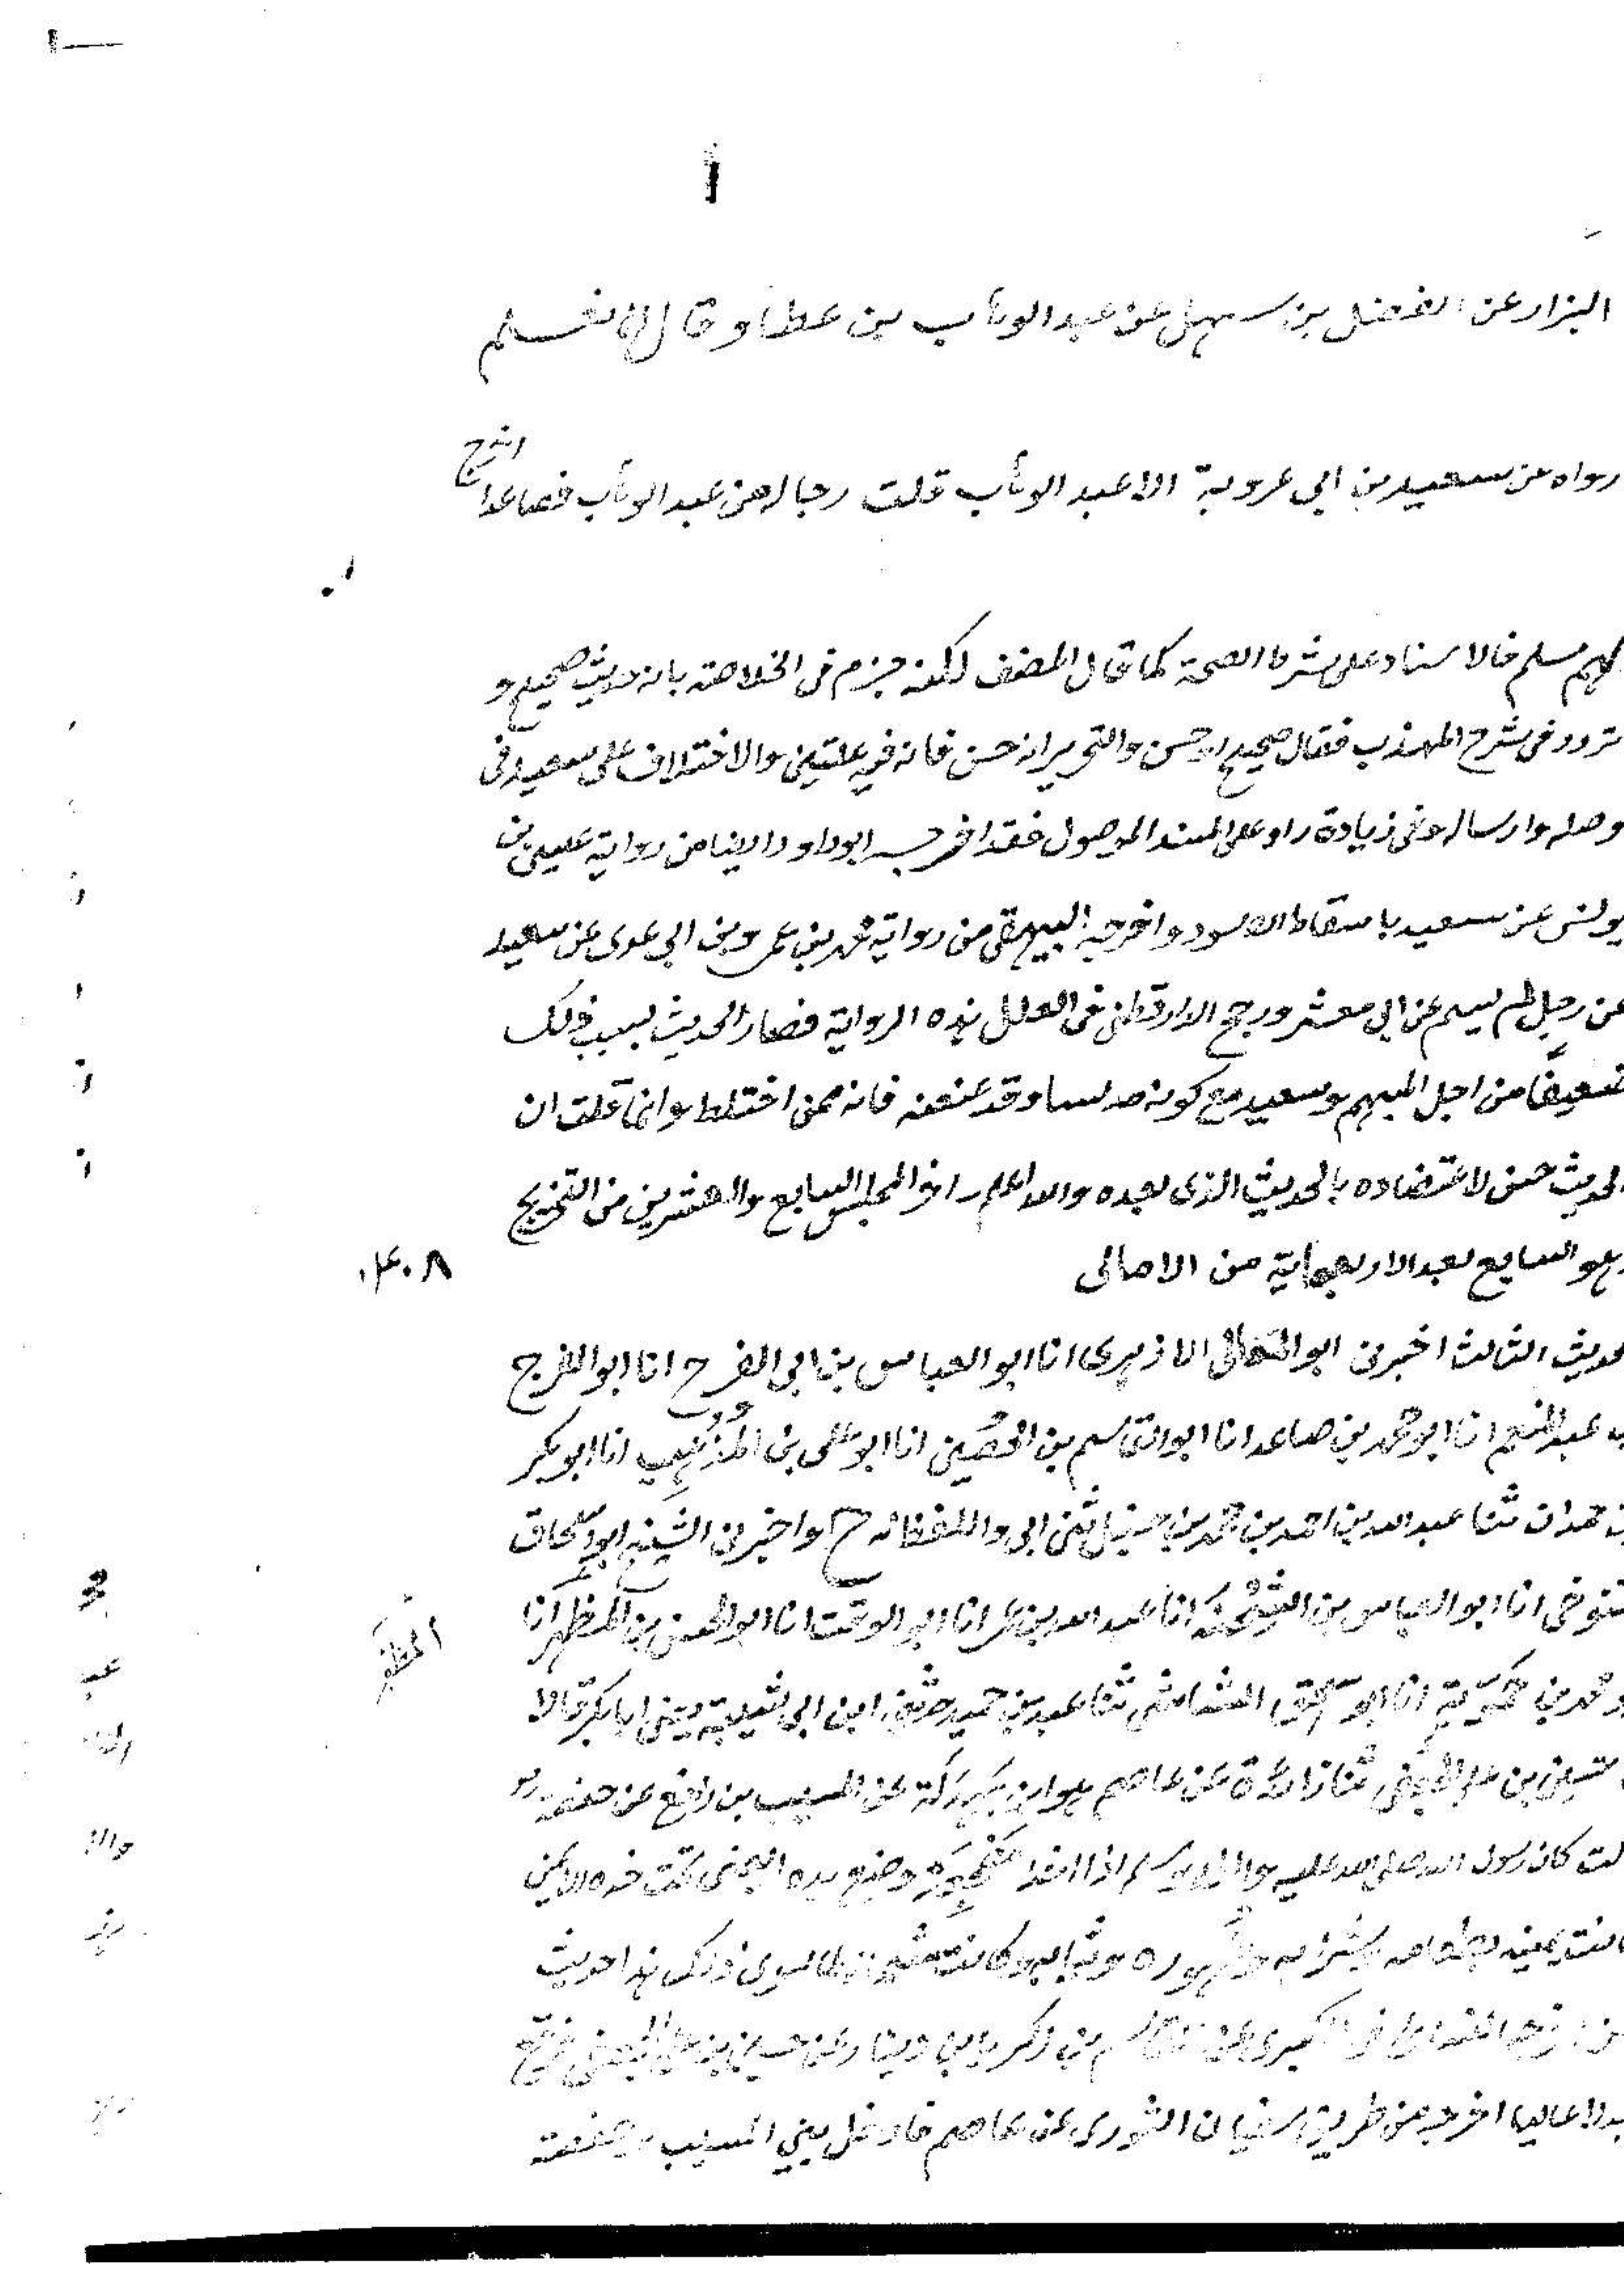 البزار عن الفضل بن سهل عن عبد الوهاب بن عطا وقال لا نعلم
اخرج
رواه عن سعيد بن ابى عروبة الا عبد الوهاب قلت رجاله من عبد الوهاب فصاعدا
لهم مسلم فالاسناد على شرط الصحة كما قال المصنف لكنه جزم فى الخلاصة بانه حديث صحيح و
تردد فى شرح المهذب فقال صحيح او حسن والتحرير انه حسن فانه فيه علتين والاختلاف على سعيد فى
وصله وارساله وفى زيادة راو على السند الموصول فقد اخرجه ابو داود ايضا من رواية عيسى بن
يونس عن سعيد باسقاط الاسود واخرجه البيهقى من رواية محمد بن عمر وبن ابى عدى عن سعيد
عن رجل لم يسم عن ابى معشر ورجح الدارقطنى فى العلل هذه الرواية فصار الحديث بسبب ذلك
ضعيفا من اجل المبهم وسعيد مع كونه مدلسا وقد عنعنه فانه ممن اختلط وانما قلت ان
الحديث حسن لاعتضاده بالحديث الذى بعده والله اعلم اخر المجلس السابع والعشرين من التخريج
وهو السابع بعد الاربعماية من الامالى
٤٠٨
الحديث الثالث اخبرنى ابو المعالى الازهرى انا ابو العباس بن ابى الفرج انا ابو الفرج
بن عبد المنعم انا ابو محمد بن صاعد انا ابو القاسم بن الحصين انا ابو على بن المذهب انا ابو بكر
بن حمدان ثنا عبد الله بن احمد بن محمد بن حنبل ثنى ابى واللفظ له ح واخبرنى الشيخ ابو اسحاق
التنوخى انا ابو العباس بن الشحنة انا عبد الله بن عمر انا ابو الوقت انا ابو الحسن بن المظفر انا
المظفر
ابو محمد بن حمويه انا ابو اسحق الشاشى ثنا عبد بن حميد حدثنى ابن ابى شيبة يعنى ابا بكر قالا
حسين بن على الجعفى ثنا زائدة عن عاصم هو ابن بهدلة عن المسيب بن رافع عن حفصة
قالت كان رسول الله صلى الله عليه واله وسلم اذا اخذ مضجعه وضع يده اليمنى تحت خده الايمن
وكانت يمينه لطعامه وشرابه وطهوره وثيابه وكانت شماله لما سوى ذلك هذا حديث
حسن اخرجه النسائى فى الكبرى عن القاسم بن زكريا بن دينار عن حسين بن على الجعفى فوقع
بدلا عاليا اخرجه من طريق سفيان الثورى عن عاصم فادخل بين المسيب وحفصة